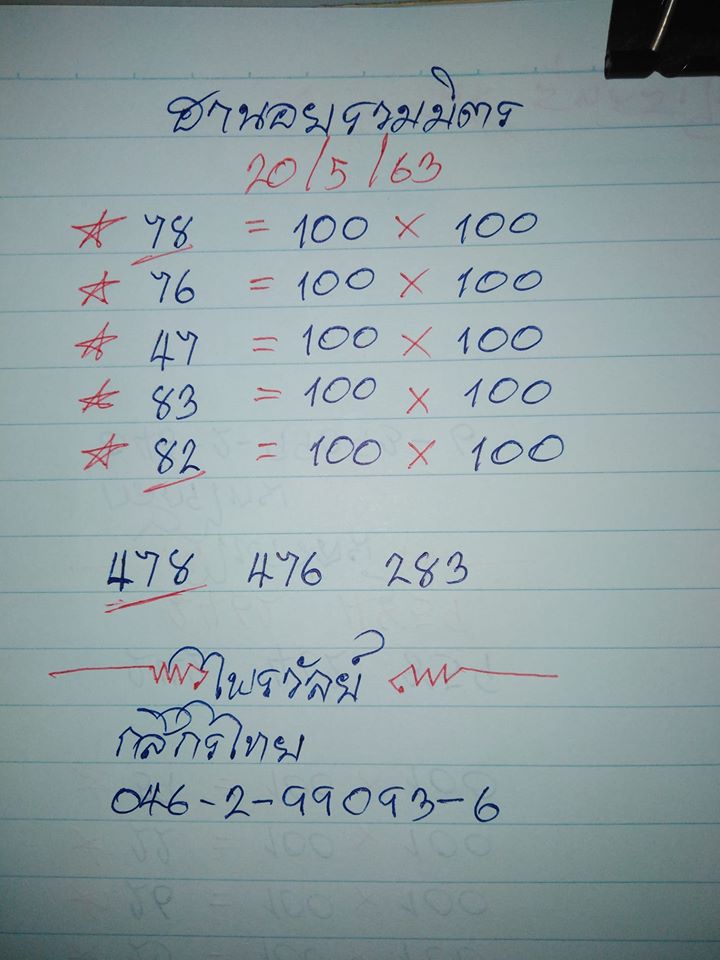 ฮานอยรวมมิตร
20/5/63
☆ 78 = 100 × 100
☆ 76 = 100 × 100
☆ 47 = 100 × 100
☆ 83 = 100 × 100
☆ 82 = 100 × 100
478 476 283
ไพรวัลย์
กสิกรไทย
046-2-99093-6